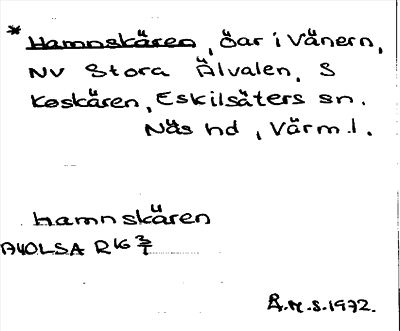 * Hamnskären, öar i Vänern,
NV Stora Älvalen, S
Koskären, Eskilsäters sn.
Näs hd, Värml.
Hamnskären
R
Å.M.S. 1972.